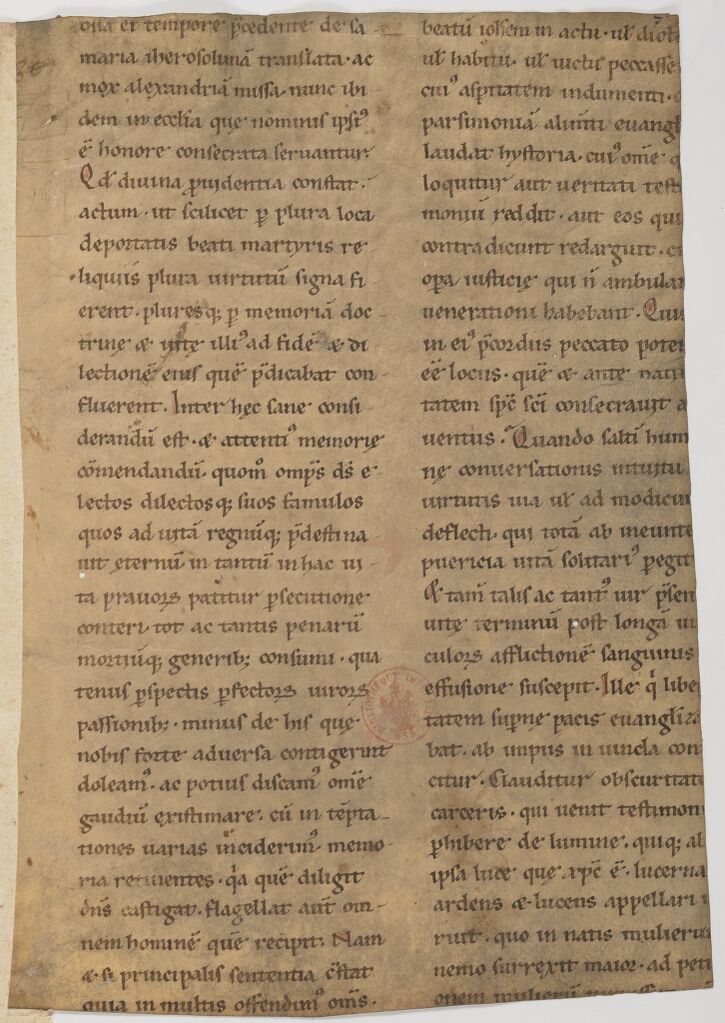 ona et tempore p̄cedente de sa-
maria iherosolimā translata · ac
mox alexandriā missa · nunc ibi-
dem in eccl̄ia que nominis ipsiꝰ
ē honore consecrata seruantur.
Qd̄ diuina ꝓuidentia constat
actum · ut scilicet ꝑ plura loca
deportatis beati martyris re-
liquiis plura uirtutū signa fi-
erent · pluresq; ꝑ memoriā doc-
trinę & uitę illiꝰ ad fidē & di-
lectionē eius quē p̄dicabat con-
fluerent. Inter hęc sane consi-
derandū est · & attentiꝰ memorię
cōmendandū · quom̄ omp̄s ds̄ e-
lectos dilectosq; suos famulos
quos ad uitā regnūq; p̄destina-
uit ęternū · in tantū in hac ui-
ta prauoꝝ patitur ꝑsecutione
conteri · tot ac tantis penarū
mortiūq; generib; consumi · qua-
tenus ꝑspectis ꝑfectoꝝ uiroꝝ
passionib; · minus de his quę
nobis forte aduersa contigerint
doleamꝰ · ac potius discamꝰ om̄e
gaudiū existimare · cū in tēpta-
tiones uarias inciderimꝰ · memo-
ria retinentes · qͥa quē diligit
dn̄s castigat · flagellat aut̄ om-
nem hominē quē recipit. Nam
& si principalis sententia c̄stat
quia in multis offendimꝰ om̄s ·
beatū ioh̄em in actu · ul̄ dicto
ul̄ habitu · ul̄ uictu peccasse
cuiꝰ asp̄itatem indumenti ·
parsimoniā alimti euangl
laudat hystoria · cuiꝰ om̄e q
loquitur aut ueritati testi
moniū reddit · aut eos qui
contradicunt redarguit · c
oꝑa iusticię qui n̄ ambulan
uenerationi habebant. Quis
in eiꝰ p̄cordiis peccato poter
eē locus · quē & ante natiui
tatem sp̄c sc̄i consecrauit a
uentus. Quando saltī hum
nę conuersationis intuitu
uirtutis uia ul̄ ad modicum
deflecti · qui totā ab ineunte
puericia uitā solitariꝰ ꝑegit
Et tam̄ talis ac tantꝰ uir p̄sen
uitę terminū post longā ui
culoꝝ afflictionē sanguinis
effusione suscepit. Ille qͥ liber
tatem supnę pacis euangliza
bat · ab impiis in uincla con
icitur. Clauditur obscuritate
carceris · qui uenit testimoni
ꝑhibere de lumine · quiq; ab
ipsa luce que xp̄c ē · lucerna
ardens & lucens appellari
ruit · quo in natis mulierū
nemo surrexit maior · ad peti